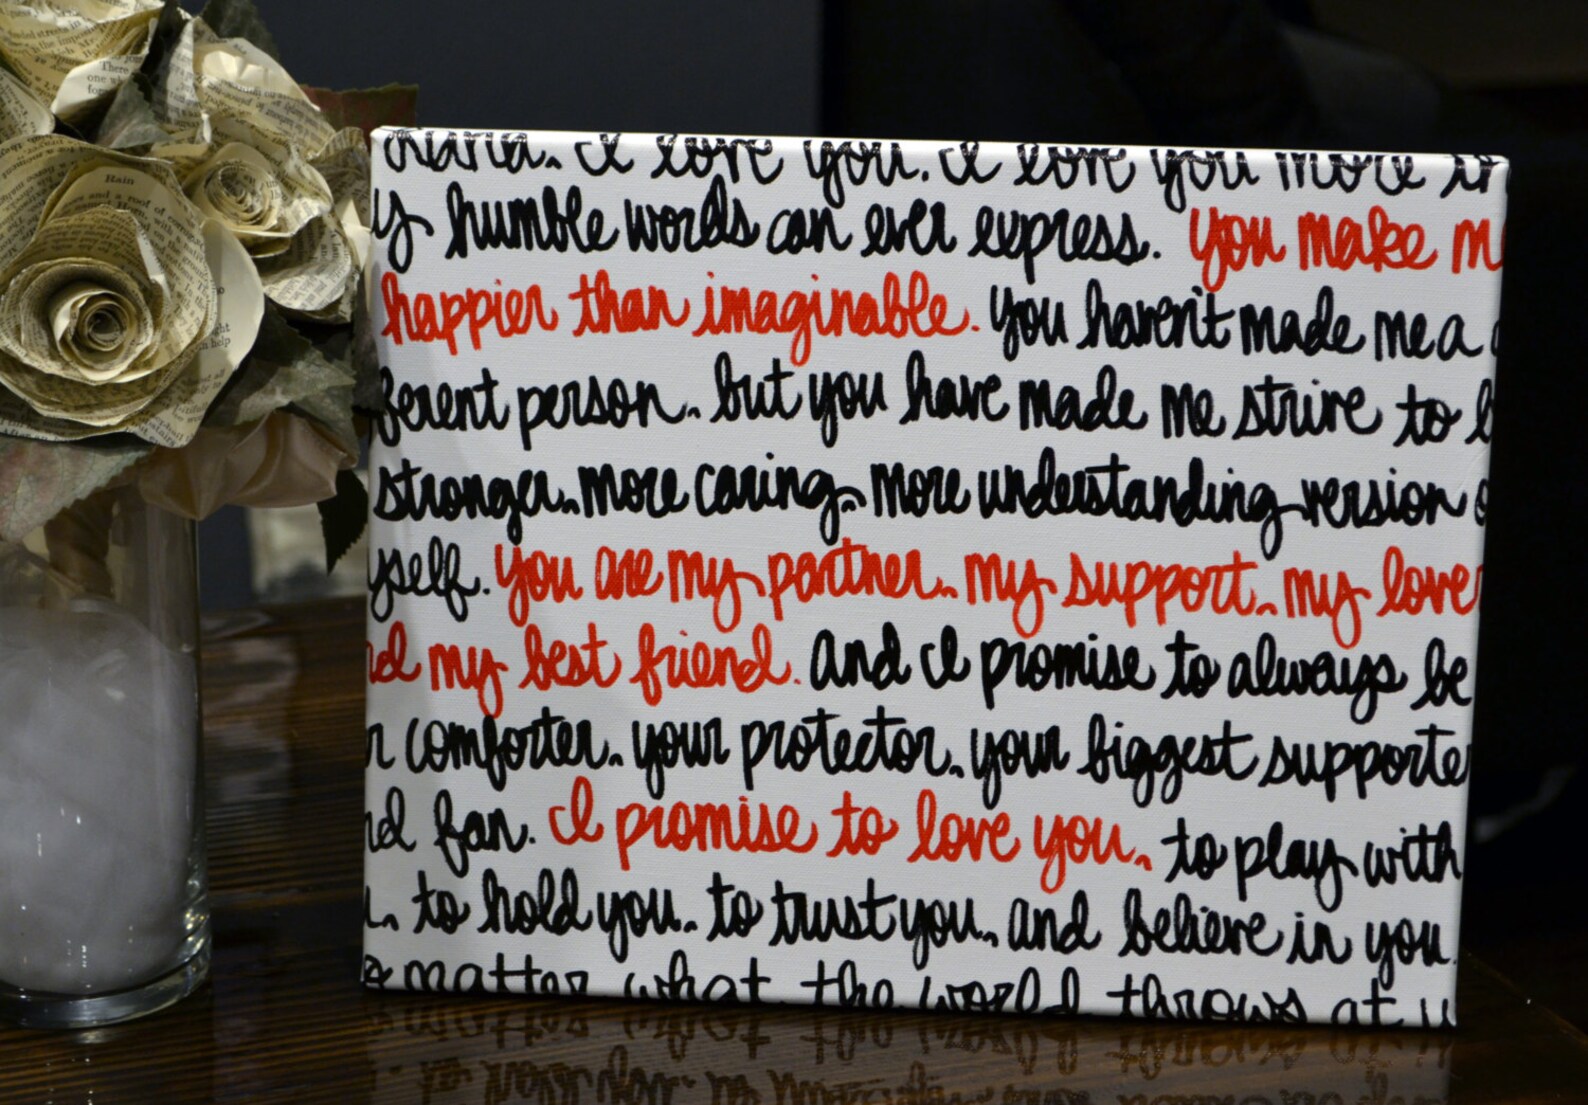 I love you. I love you more
humble words can ever express. You make
happier than imaginable. You haven't made me a
ferent person, but you have made me strive to
stronger, more caring, more understanding version
yself. You are my partner, my support, my lover
nd my best friend. And I promise to always be
r comforter, your protector, your biggest supporte
nd fan. I promise to love you, to play with
u, to hold you, to trust you, and believe in you.
matter what the world throws at u
Rain